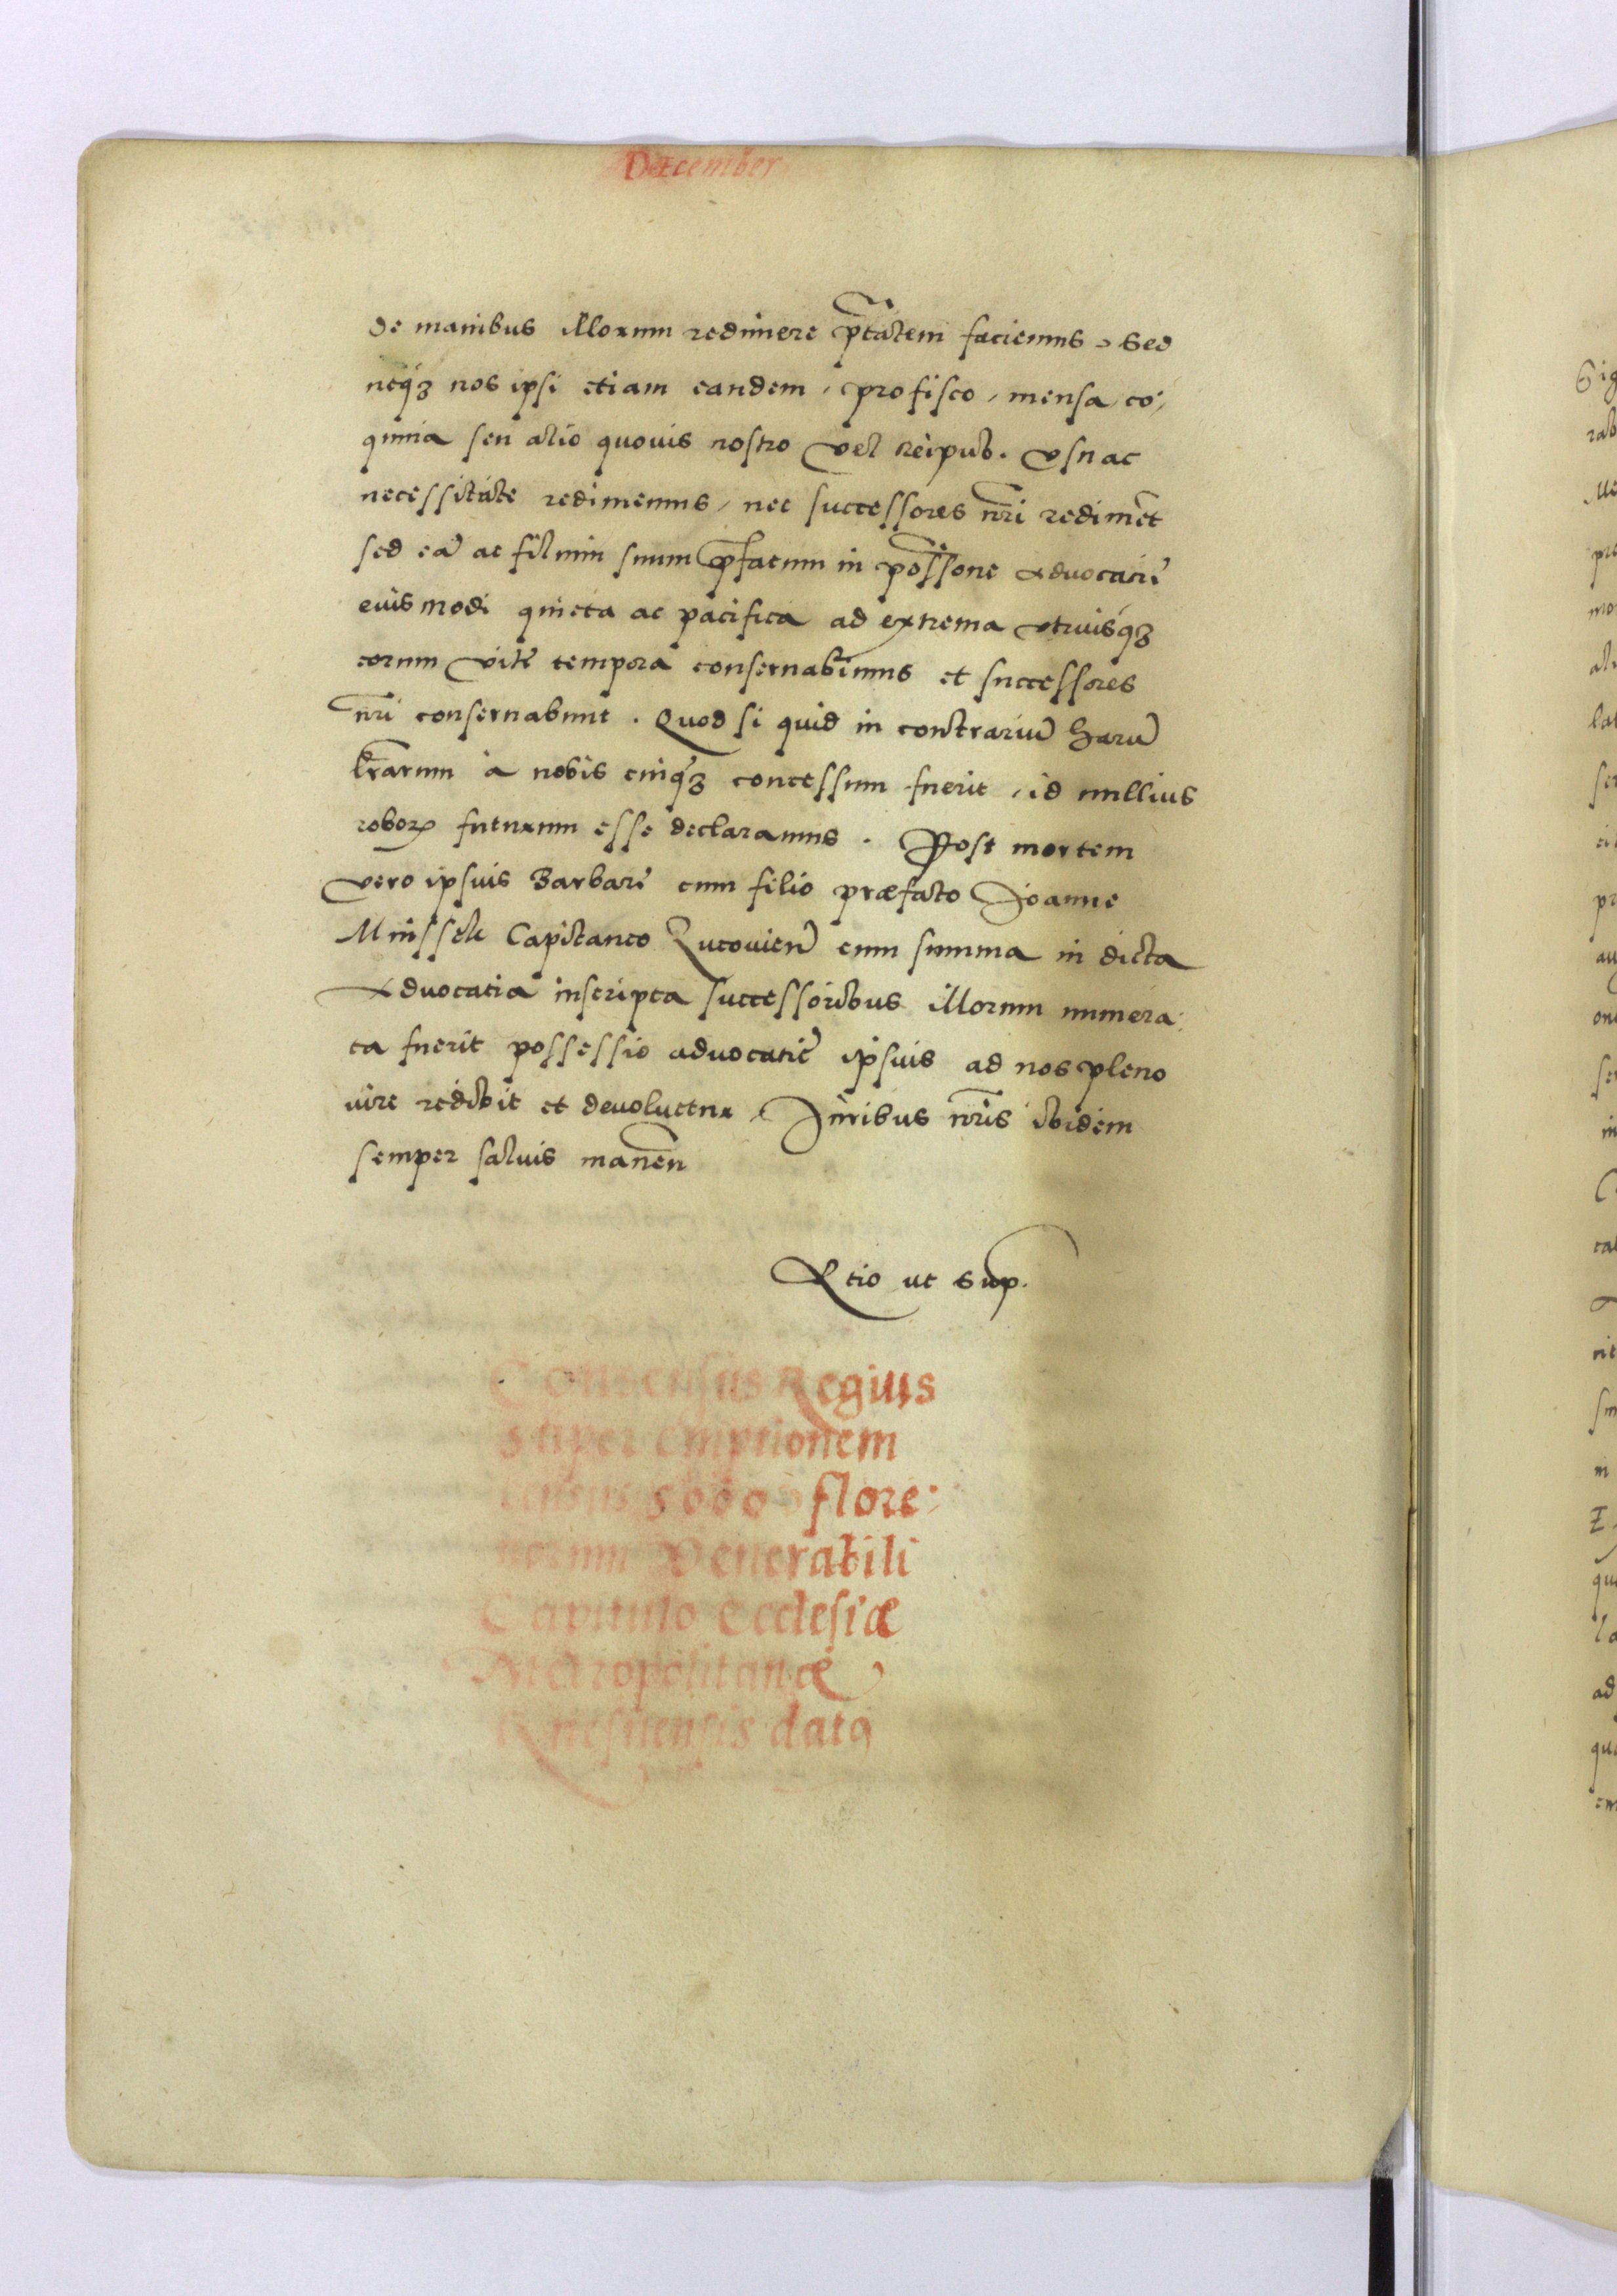 December
de manibus illorum redimere ptãtem faciemus. Sed
neq́ꝫ nos ipsi etiam eandem, pro fisco, mensa, co-
quina seu alio quovis nostro vel Reipub. vsu ac
necessitate redimemus, nec successores nr̃i redimẽt
sed eã ac filium suum p̃fatum in possõne Advocatiẽ
eiusmodi quieta ac pacifica ad extrema vtriusq́ꝫ
eorum vitę tempora conseruabimus et successores
nr̃i conseruabunt. Quod si quid in contrariũ harũ
lr̃arum à nobis cuiq́ꝫ concessum fuerit, id nullius
roboris futurum esse declaramus. Post mortem
vero ipsius Barbarę cum filio præfato Joanne
Capitaneo cum summa in dicta
Advocatia inscripta successoribus illorum numera:
ta fuerit possessio advocatię ipsius ad nos pleno
iure redibit et devoluetur, Juribus nr̃is ibidem
semper salvis maneñ
Rtio ut sup.
Consensus Regius
super emptionem
census 5000 flore:
norum Venerabili
Capitulo Ecclesiæ
Metropolitanæ
Gnesnensis data